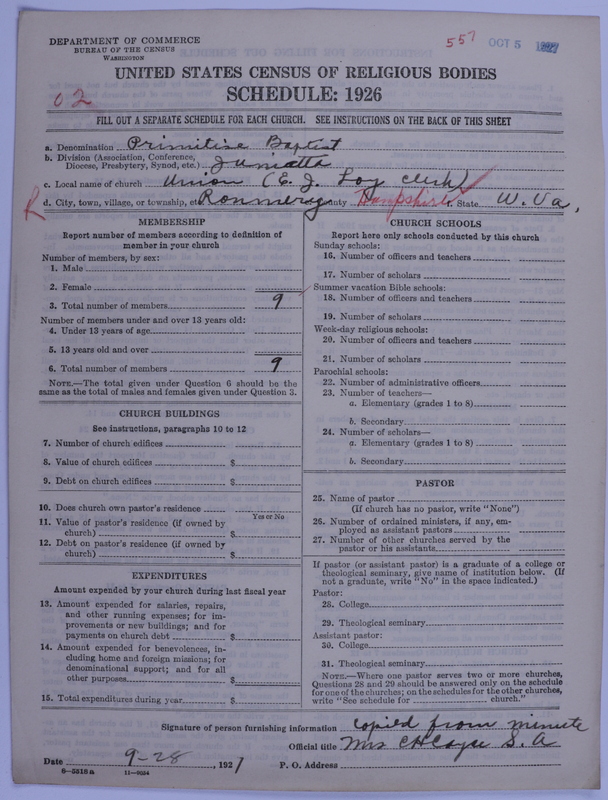 DEPARTMENT OF COMMERCE
BUREAU OF THE CENSUS
WASHINGTON
557 OCT 5 1927
UNITED STATES CENSUS OF RELIGIOUS BODIES
SCHEDULE: 1926
02
FILL OUT A SEPARATE SCHEDULE FOR EACH CHURCH. SEE INSTRUCTIONS ON THE BACK OF THIS SHEET
a. Denomination Primitive Baptist
b. Division (Association, Conference,
Diocese, Presbytery, Synod, etc.) Juniatta
c. Local name of church Union (E. J. Loy Clerk)
R d. City, town, village, or township, etc. County Hampshire State W. Va,
MEMBERSHIP
Report number of members according to definition of
member in your church
Number of members, by sex:
1. Male
2. Female
3. Total number of members 9
Number of members under and over 13 years old:
4. Under 13 years of age
5. 13 years old and over
6. Total number of members 9
NOTE.—The total given under Question 6 should be the
same as the total of males and females given under Question 3.
CHURCH BUILDINGS
See instructions, paragraphs 10 to 12
7. Number of church edifices
8. Value of church edifices $
9. Debt on church edifices $
10. Does church own pastor's residence
Yes or No
11. Value of pastor's residence (if owned by
church) $
12. Debt on pastor's residence (if owned by
church) $
EXPENDITURES
Amount expended by your church during last fiscal year
13. Amount expended for salaries, repairs,
and other running expenses; for im-
provements or new buildings; and for
payments on church debt $
14. Amount expended for benevolences, in-
cluding home and foreign missions; for
denominational support; and for all
other purposes $
15. Total expenditures during year $
CHURCH SCHOOLS
Report here only schools conducted by this church
Sunday schools:
16. Number of officers and teachers
17. Number of scholars
Summer vacation Bible schools:
18. Number of officers and teachers
19. Number of scholars
Week-day religious schools:
20. Number of officers and teachers
21. Number of scholars
Parochial schools:
22. Number of administrative officers
23. Number of teachers—
a. Elementary (grades 1 to 8)
b. Secondary
24. Number of scholars—
a. Elementary (grades 1 to 8)
b. Secondary
PASTOR
25. Name of pastor
(If church has no pastor, write "None")
26. Number of ordained ministers, if any, em-
ployed as assistant pastors
27. Number of other churches served by the
pastor or his assistants
If pastor (or assistant pastor) is a graduate of a college or
theological seminary, give name of institution below. (If
not a graduate, write "No" in the space indicated.)
Pastor:
28. College
29. Theological seminary
Assistant pastor:
30. College
31. Theological seminary
NOTE.—Where one pastor serves two or more churches,
Questions 28 and 29 should be answered only on the schedule
for one of the churches; on the schedules for the other churches,
write "See schedule for church."
Signature of person furnishing information copied from minute
Official title Mrs CH S. A
Date 9-28, 1927 P. O. Address
8-5518 a 11-9034